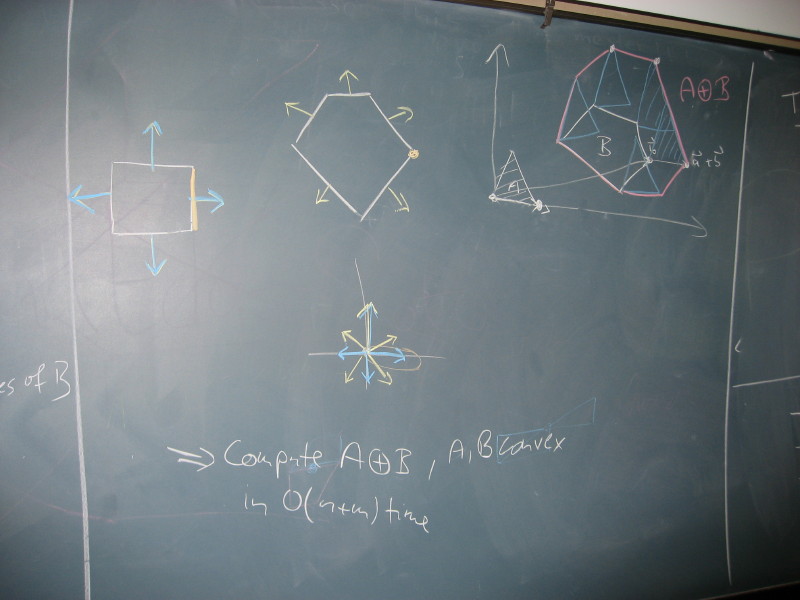 A⊕B
B
b⃗
a⃗ + b⃗
A
es of B
⇒ Compute A⊕B, A, B convex
in O(n+m) time